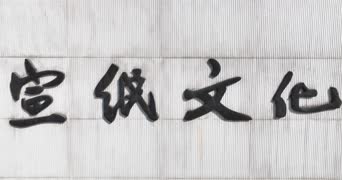 宣纸文化